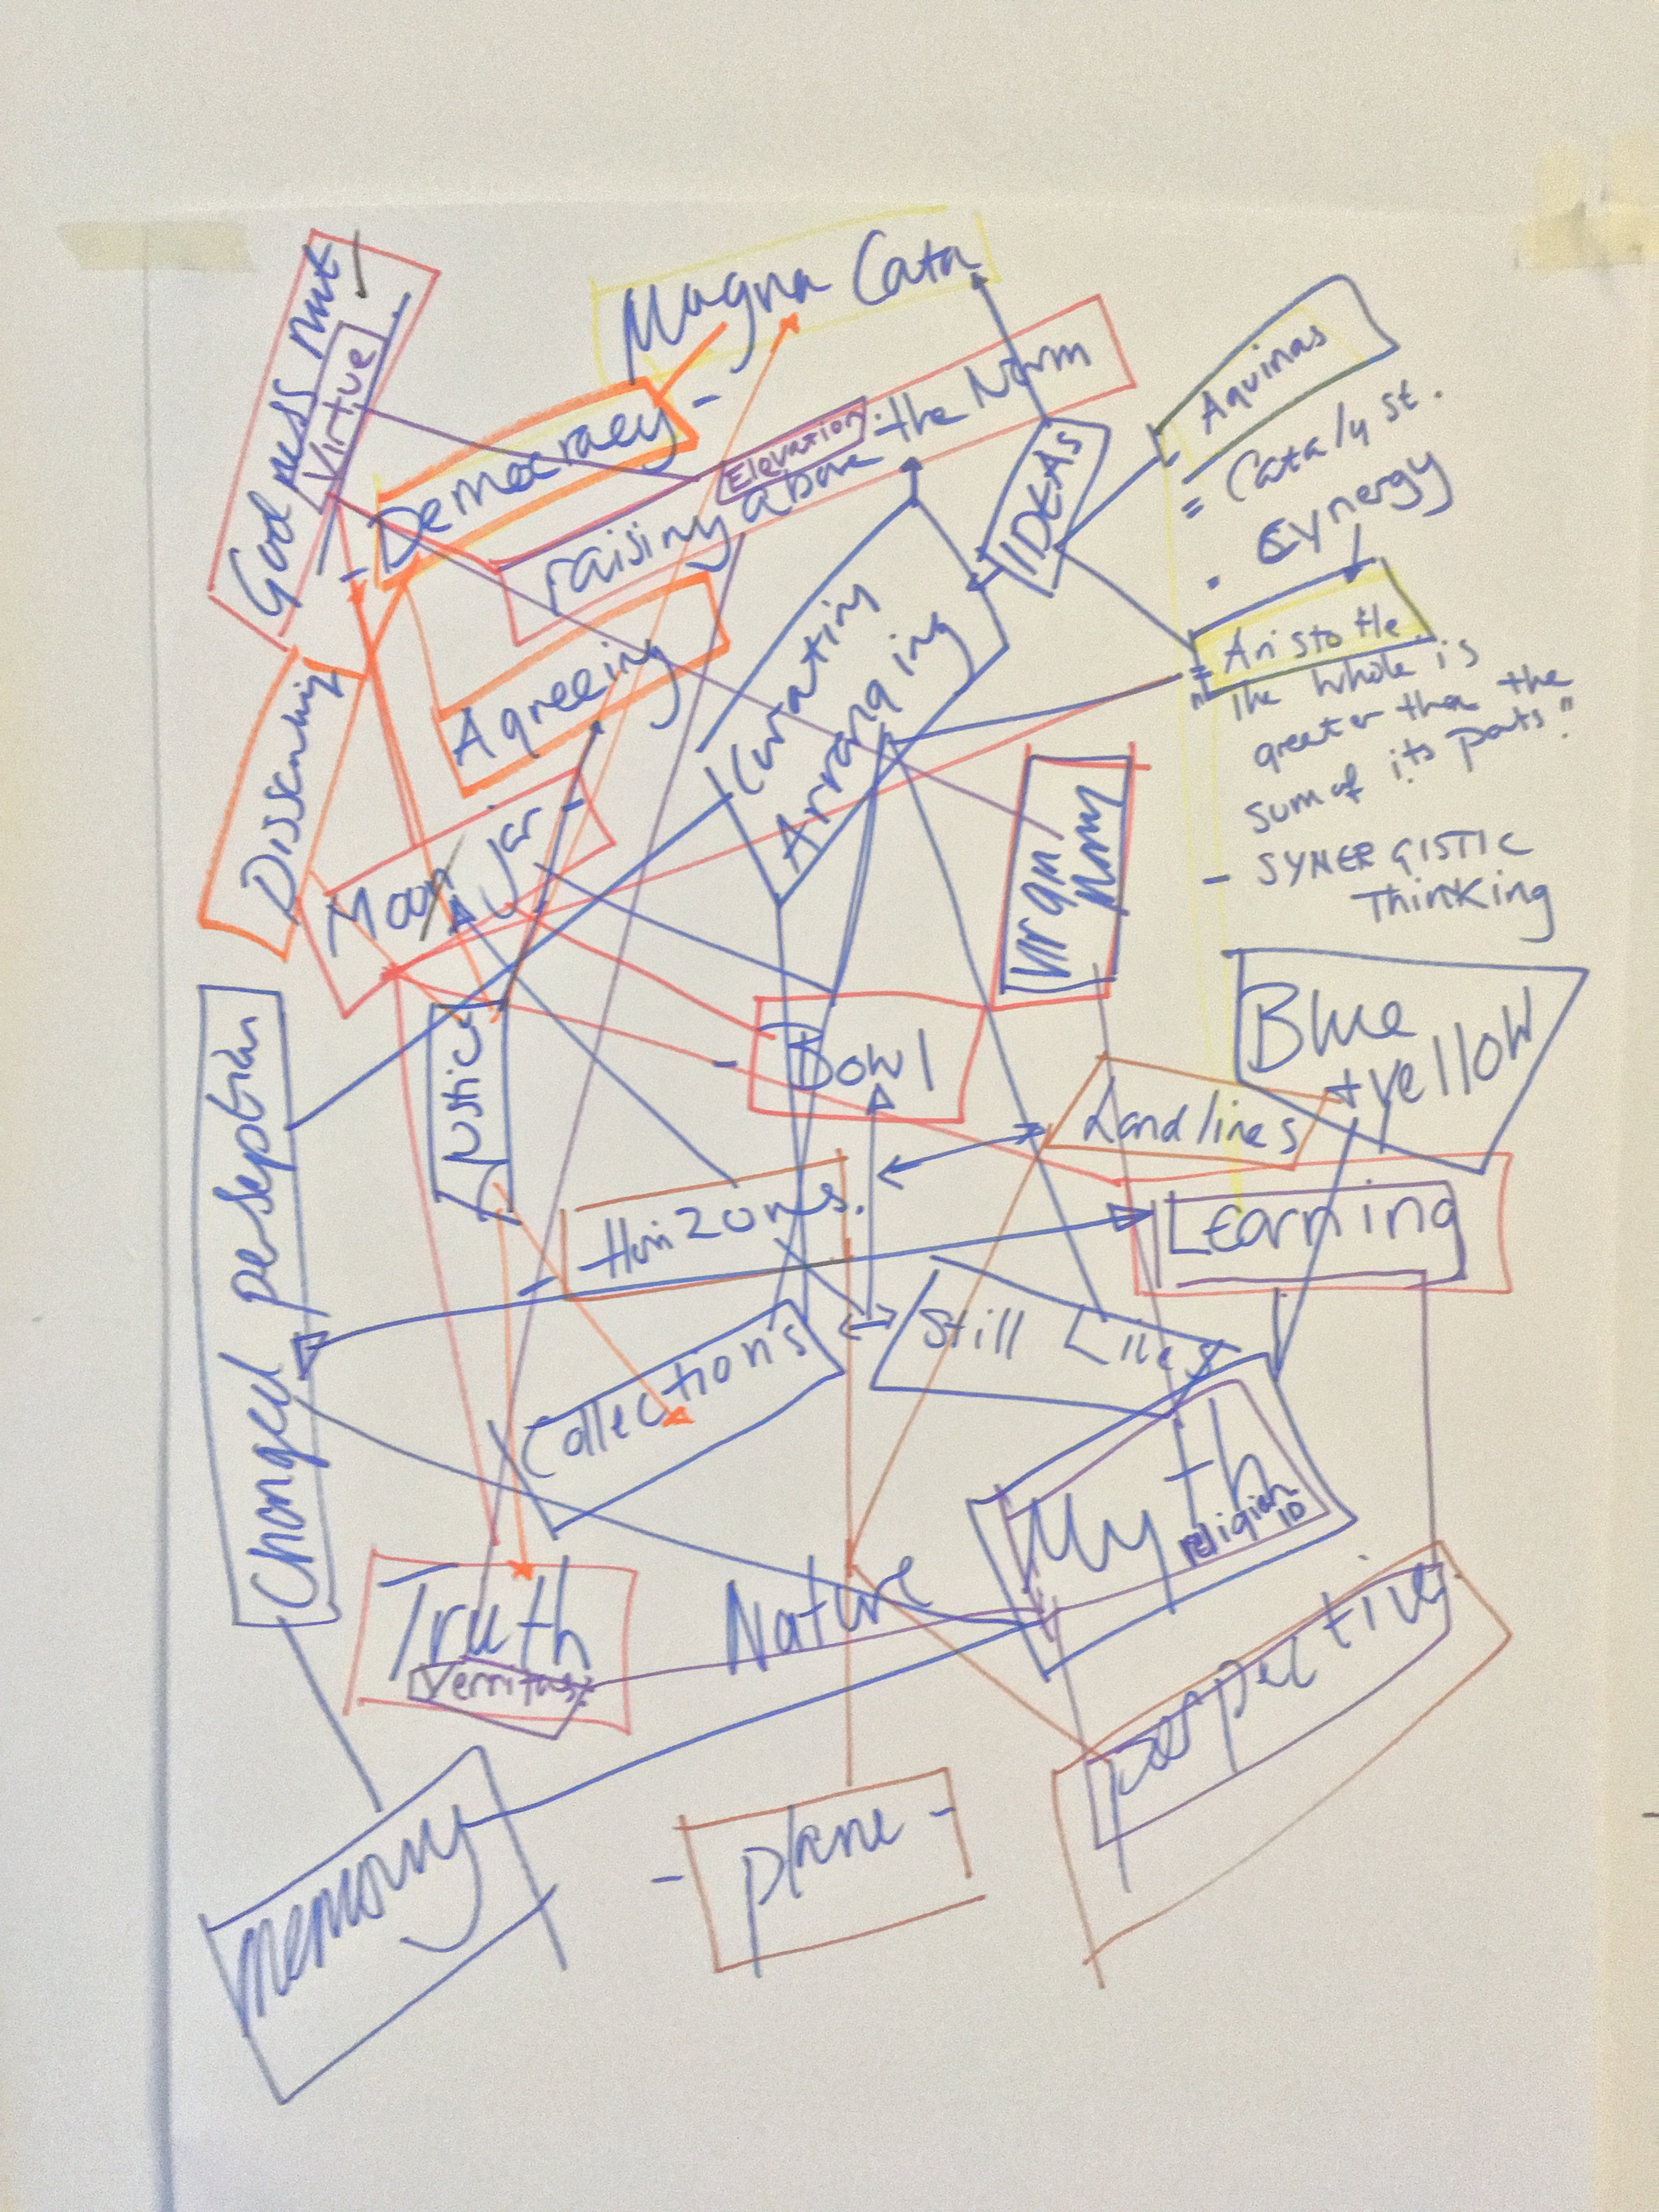 Magna Cata
Goodness
Virtue
- Democracy -
Elevation
raising above the Norm
IDEAS
Aquinas
= Catalyst.
. Cynergy
Aristotle
= "The whole is
greater than the
sum of its parts"
- SYNERGISTIC
Thinking
Agreeing
Kurating
Arranging
Moon jar -
Virgin
Mary
Justice
- Bowl
Blue
+ yellow
Landlines
Changed perseption
- Horizones.
Learning
Collections
Still Lifes
Myth
religion
ID
Truth
Verritas
Nature
perpective
memory
- plane -